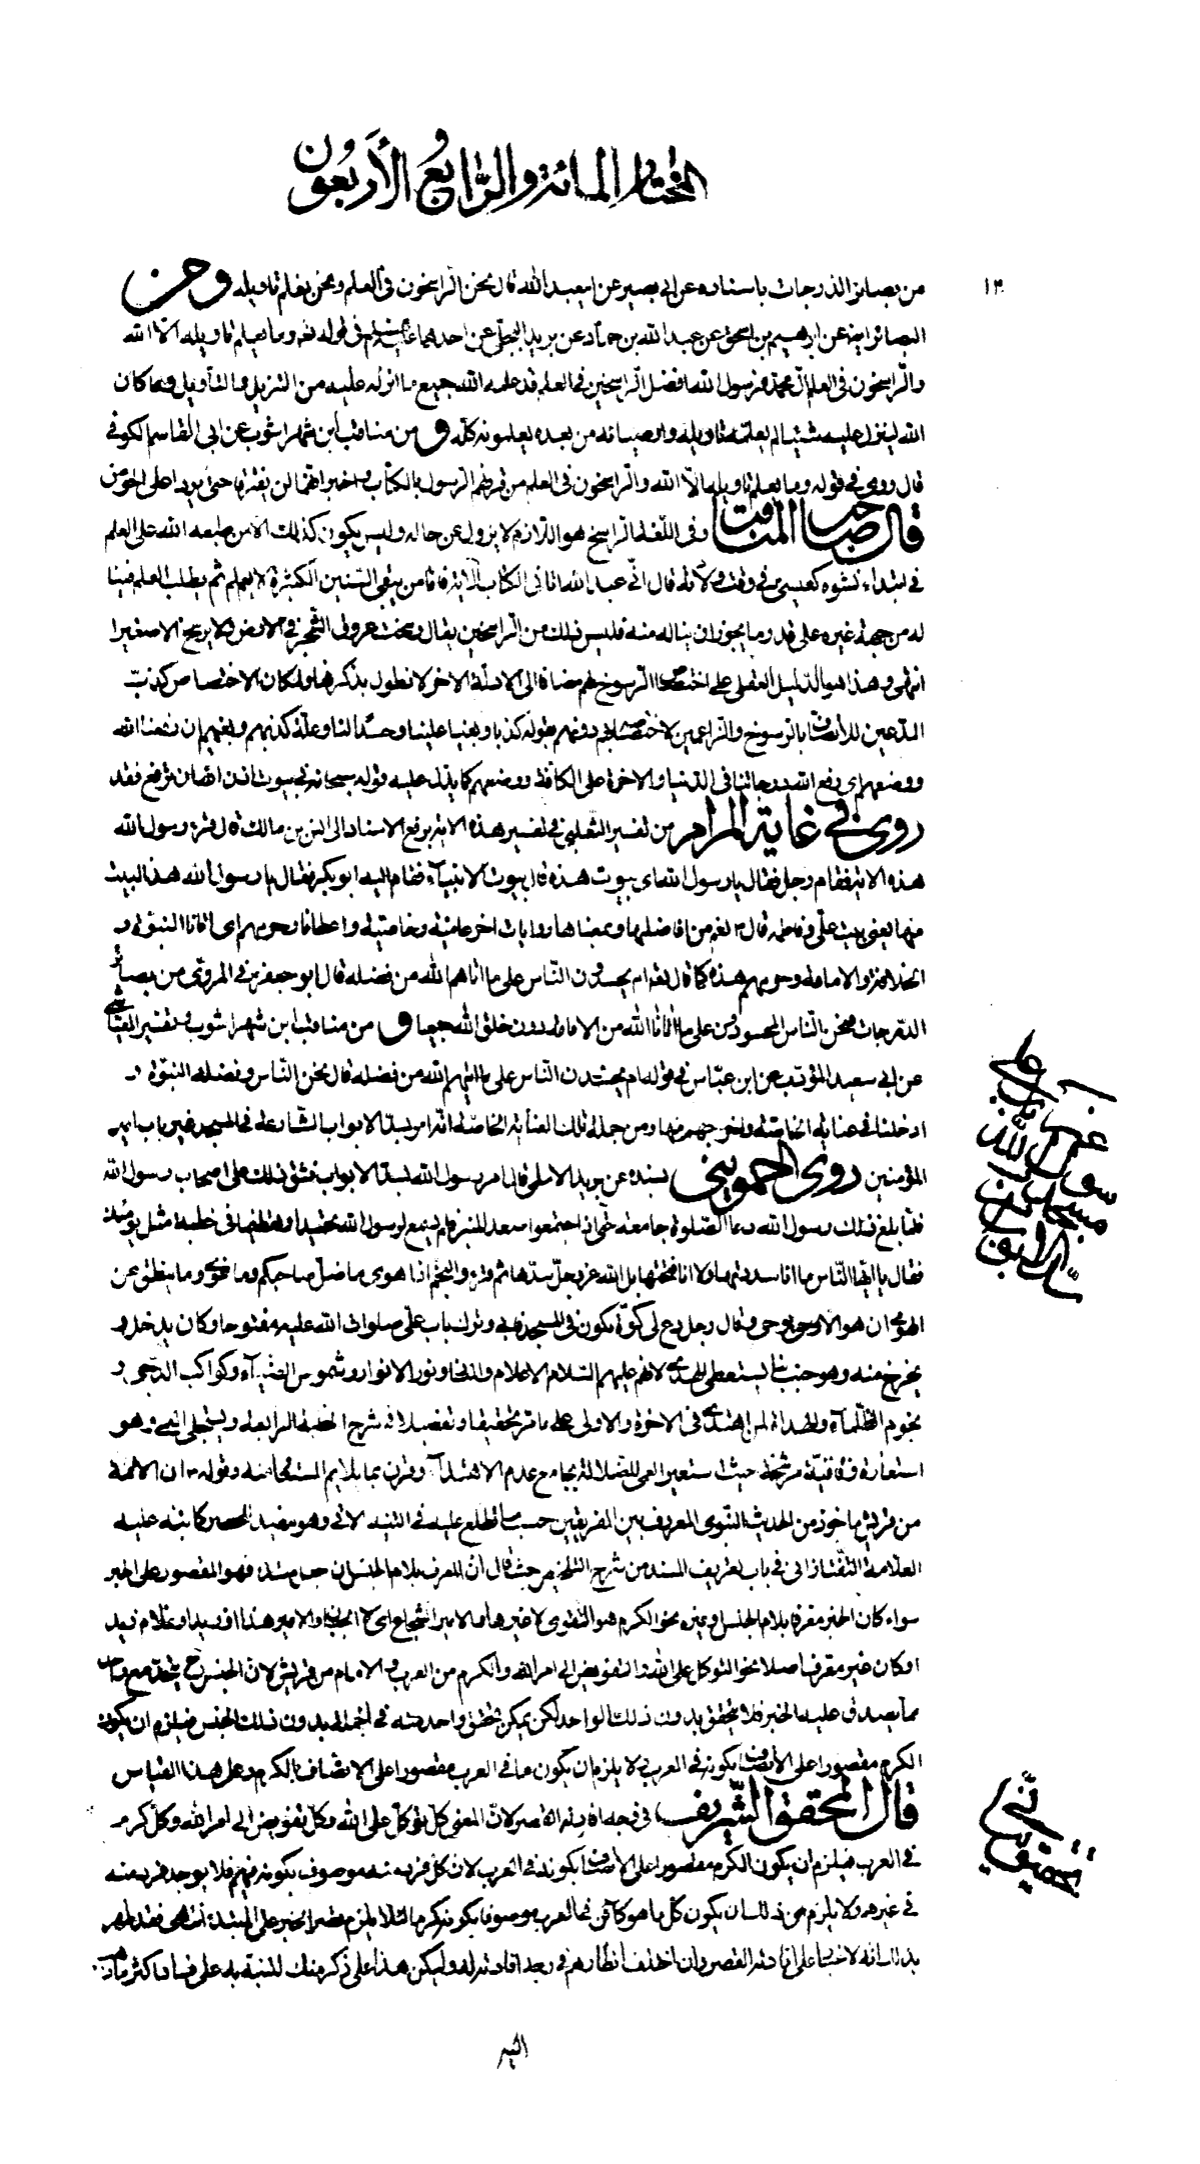 المختار المائة والرّابع والأربعون
١٣٠
من بصائر الدّرجات باسناده عن ابى بصير عن ابيعبد الله قال نحن الرّاسخون فى العلم ونحن نعلم تاويله ومن
البصائر ايضا عن ابرهيم بن اسحق عن عبد الله بن حماد عن بريد العجلى عن احدهما فى قوله تعالى وما يعلم تاويله الّا الله
والرّاسخون فى العلم الى محمد فرسول الله افضل الرّاسخين فى العلم قد علمه الله جميع ما انزله عليه من التنزيل والتأويل وما كان
الله لينزل عليه شيئا لم يعلّمه تاويله واوصيائه من بعده يعلمونه كلّه و من مناقب ابن شهراشوب عن ابى القاسم الكوفى
قال روى فى قوله وما يعلم تاويله الّا الله والرّاسخون فى العلم من قرنهم الرّسول بالكتاب واخبر انهما لن يفترقا حتى يردا على الحوض
قال صاحب المناقب وفى اللّغة الرّاسخ هو اللّازم لا يزول عن حاله وليس يكون كذلك الا من طبعه الله على العلم
فى ابتداء نشوه كعيسى فى وقت ولادته قال انّى عبد الله اتانى الكتاب الاية فامّا من يبقى السّنين الكثيرة لا يعلم ثم يطلب العلم فينا
له من جهة غيره على قدر ما يجوز ان يناله منه فليس ذلك من الرّاسخين يقال رسخت عروق الشّجر فى الارض ولا يرسخ الا صغيرا
انتهى وهذا هو الدّليل العقلى على اختصاص الرّسوخ بهم مضافا الى الادلّة الاخر لا نطول بذكرها ولمكان الاختصاص كذّب
المدّعين للاتّصاف بالرّسوخ والزّاعمين لاختصاصه بهم دونهم بقوله كذبا وبغيا علينا وحسدا لنا وعلّة كذبهم وبغيهم ان رفعنا الله
ووضعهم اى رفع الله درجاتنا فى الدّنيا والاخرة على الكافّة ووضعهم كما يدلّ عليه قوله سبحانه فى بيوت اذن الله ان ترفع فقد
روى فى غاية المرام من تفسير الثعلبى فى تفسير هذه الاية يرفع الاسناد الى انس بن مالك قال قرء رسول الله
هذه الاية فقام رجل فقال يا رسول الله اى بيوت هذه قال بيوت الانبيآء فقام اليه ابو بكر فقال يا رسول الله هذا البيت
منها يعنى بيت علىّ وفاطمة قال نعم من افاضلها وبمعناها روايات اخر عامّيّة وخاصّيّة واعطانا وحرمهم اى اتانا النبوّة و
الخلافة والامامة وحرمهم هذه كما قال تعالى ام يحسدون النّاس على ما اتاهم الله من فضله قال ابو جعفر فى المروىّ من بصائر
الدّرجات نحن النّاس المحسودون على ما اتانا الله من الامامة دون خلق الله جميعا و من مناقب ابن شهراشوب وتفسير العيّاشى
عن ابى سعيد المؤدّب عن ابن عبّاس فى قوله ام يحسدون النّاس على ما اتيهم الله من فضله قال نحن النّاس وفضله النبوّة و
ادخلنا فى عنايته الخاصّة واخرجهم منها ومن جملة تلك العناية الخاصّة انه امر بسدّ الابواب الشّارعة فى المسجد غير باب امير
المؤمنين روى الحموينى بسنده عن بريد الاسلمى قال امر رسول الله بسدّ الابواب فشقّ ذلك على اصحاب رسول الله
فلمّا بلغ ذلك رسول الله دعا الصّلوة جامعة حتى اذا اجتمعوا صعد المنبر فلم يسمع لرسول الله تحميدا وتعظيما فى خطبة مثل يومئذ
فقال يا ايّها النّاس ما انا سددتها ولا انا فتحتها بل الله عزّ وجلّ سدّها ثم قرء والنّجم اذا هوى ما ضلّ صاحبكم وما غوى وما ينطق عن
الهوى ان هو الّا وحى يوحى وقال رجل دع لى كوّة تكون فى المسجد فابى وترك باب علىّ صلوات الله عليه مفتوحا وكان يدخل و
يخرج منه وهو جنب بنا يستعطى الهدى لانّهم عليهم السّلام الاعلام والهداة ونور الانوار وشموس الضّيآء وكواكب الدّجى و
نجوم الظّلمآء والهداة لمن اهتدى فى الاخرة والاولى على ما مرّ تحقيقا وتفصيلا فى شرح الخطبة الرّابعة ويستجلى العمى وهو
استعارة وفاقيّة مرشّحة حيث استعير العمى للضّلالة بجامع عدم الاهتدآء وقرن بما يلايم المستعار منه وقوله ان الائمّة
من قريش ماخوذ من الحديث النّبوى المعروف بين الفريقين حسبما تطّلع عليه فى التنبيه الاتى وهو مفيد للحصر كما نبّه عليه
العلّامة التّفتازانى فى باب تعريف المسند من شرح التلخيص حيث قال ان المعرف بلام الجنس ان جعل مبتدء فهو المقصور على الخبر
سواء كان الخبر معرفا بلام الجنس او غيره نحو الكرم هو التقوى لا غيرها والامير الشّجاع اى لا الجبان والامير هذا او زيد او غلام زيد
او كان غير معرف اصلا نحو التوكل على الله والتفويض الى امر الله والكرم من العرب والامام من قريش لان الجنس ح يتّحد مع واحد
مما يصدق عليه الخبر فلا يتحقق بدون ذلك الواحد لكن يمكن تحقق واحد منه فى الجملة بدون ذلك الجنس فيلزم ان يكون
الكرم مقصورا على الاتصاف بكونه فى العرب لا يلزم ان يكون ما فى العرب مقصورا على الاتصاف بالكرم وعلى هذا القياس
قال المحقق الشّريف فى وجه افادته القصر لانّ المعنى كلّ توكّل على الله وكلّ تفويض الى امر الله وكلّ كرم
فى العرب فيلزم ان يكون الكرم مقصورا على الاتصاف بكونه فى العرب لان كل فرد منه موصوف بكونه فيهم فلا يوجد فرد منه
فى غيرهم ولا يلزم من ذلك ان يكون كل ما هو كائن فى العرب موصوفا بكونه كرما لئلا يلزم قصر الخبر على المبتدء انتهى فقد ظهر
بذلك انه لا خلاف على افادته القصر وان اختلف انظارهم فى وجه افادته له وليكن هذا على ذكر منك لتنبّه به على فساد اكثر ما